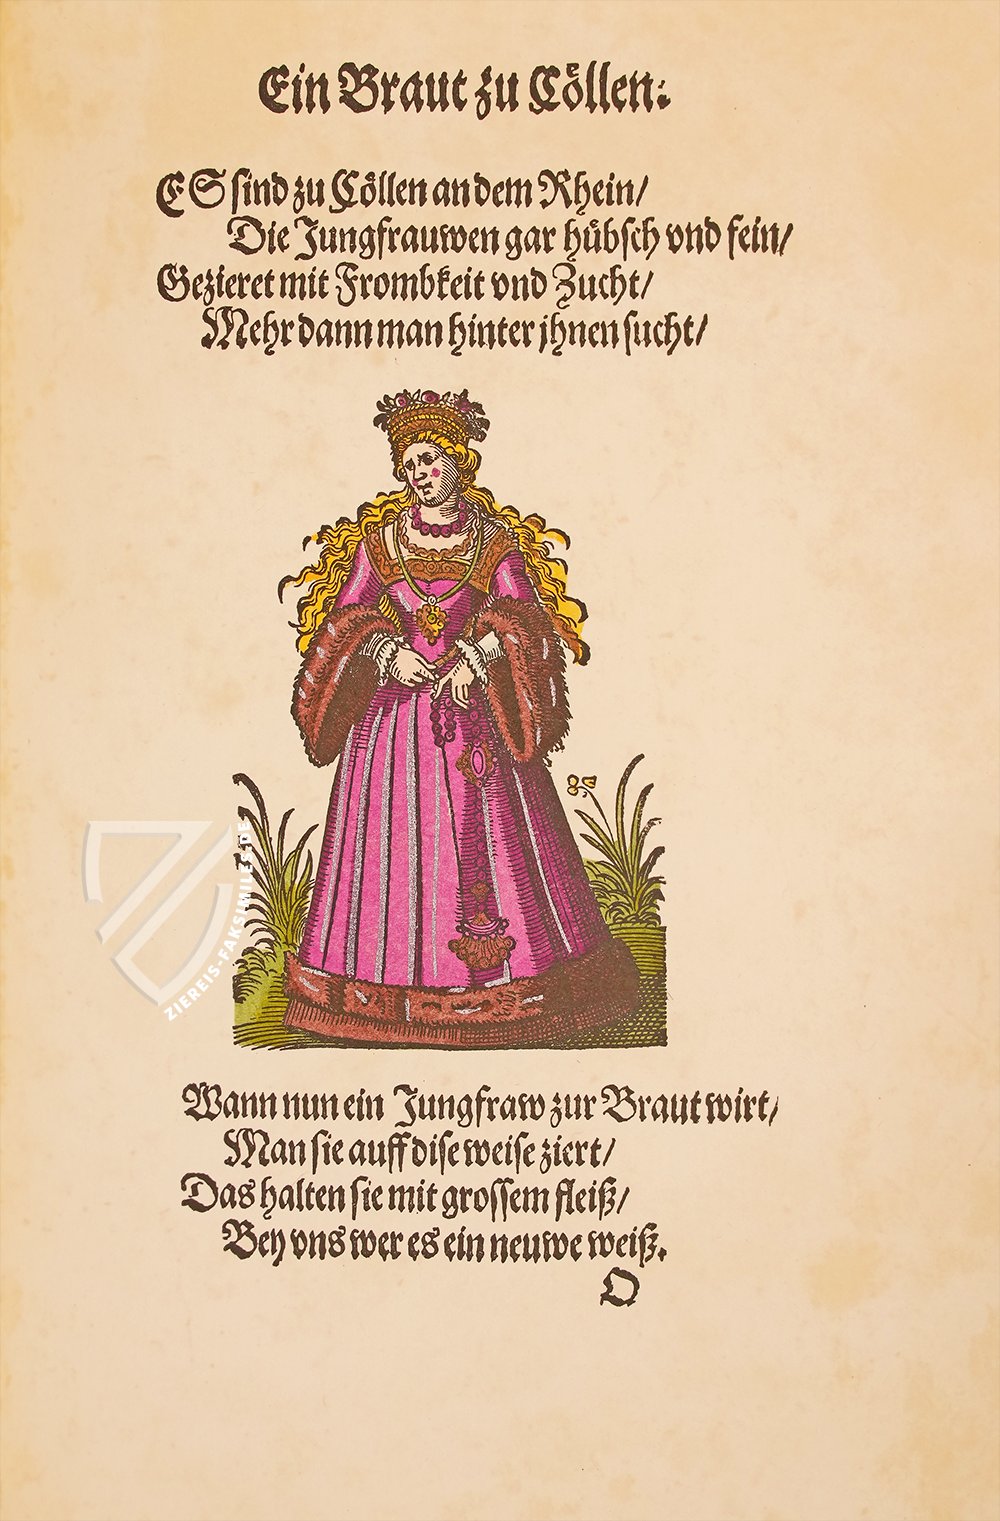 Ein Braut zu Cöllen:
ES sind zu Cöllen an dem Rhein/
Die Jungfrauwen gar hübsch vnd fein/
Gezieret mit Frombkeit vnd Zucht/
Mehr dann man hinter jhnen sucht/
ZIEREIS-FAKSIMILES.DE
Wann nun ein Jungfraw zur Braut wirt/
Man sie auff dise weise ziert/
Das halten sie mit grossem fleiß/
Bey vns wer es ein neuwe weiß.
O